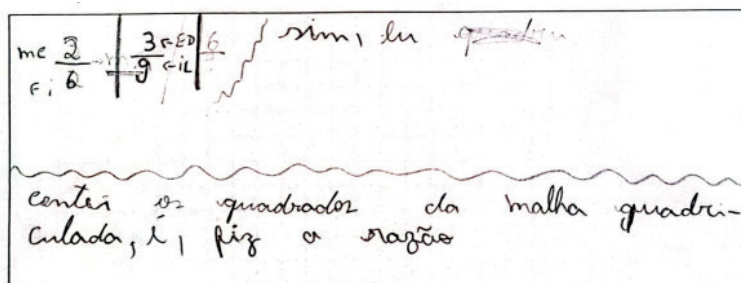 mc 2/6 | 3/9 ←ED ←iL | 6 sim, eu
Fi
contei os quadrados da malha quadri-
culada, i, fiz a razão